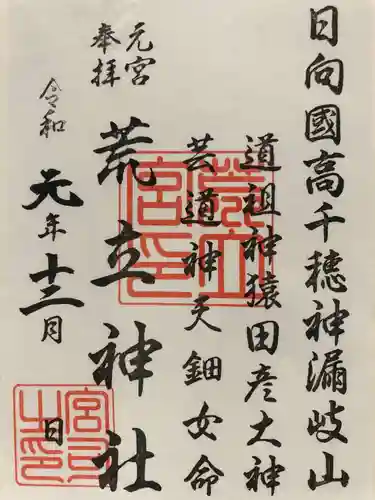 日向國高千穂神漏岐山
道祖神猿田彦大神
芸道神天鈿女命
元宮
奉拝
荒立神社
令和元年十二月 日